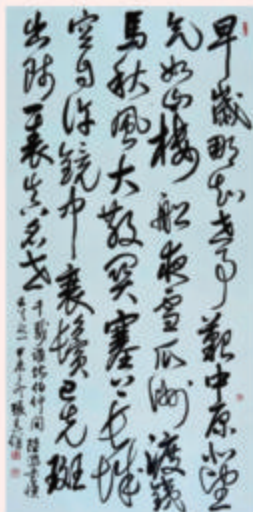 早歲那知世事艱中原北望
气如山楼船夜雪瓜洲渡鐵
馬秋風大散関塞上長城
空自许鏡中衰鬢已先斑
出师一表真名世
千載誰堪伯仲間 陸游書憤